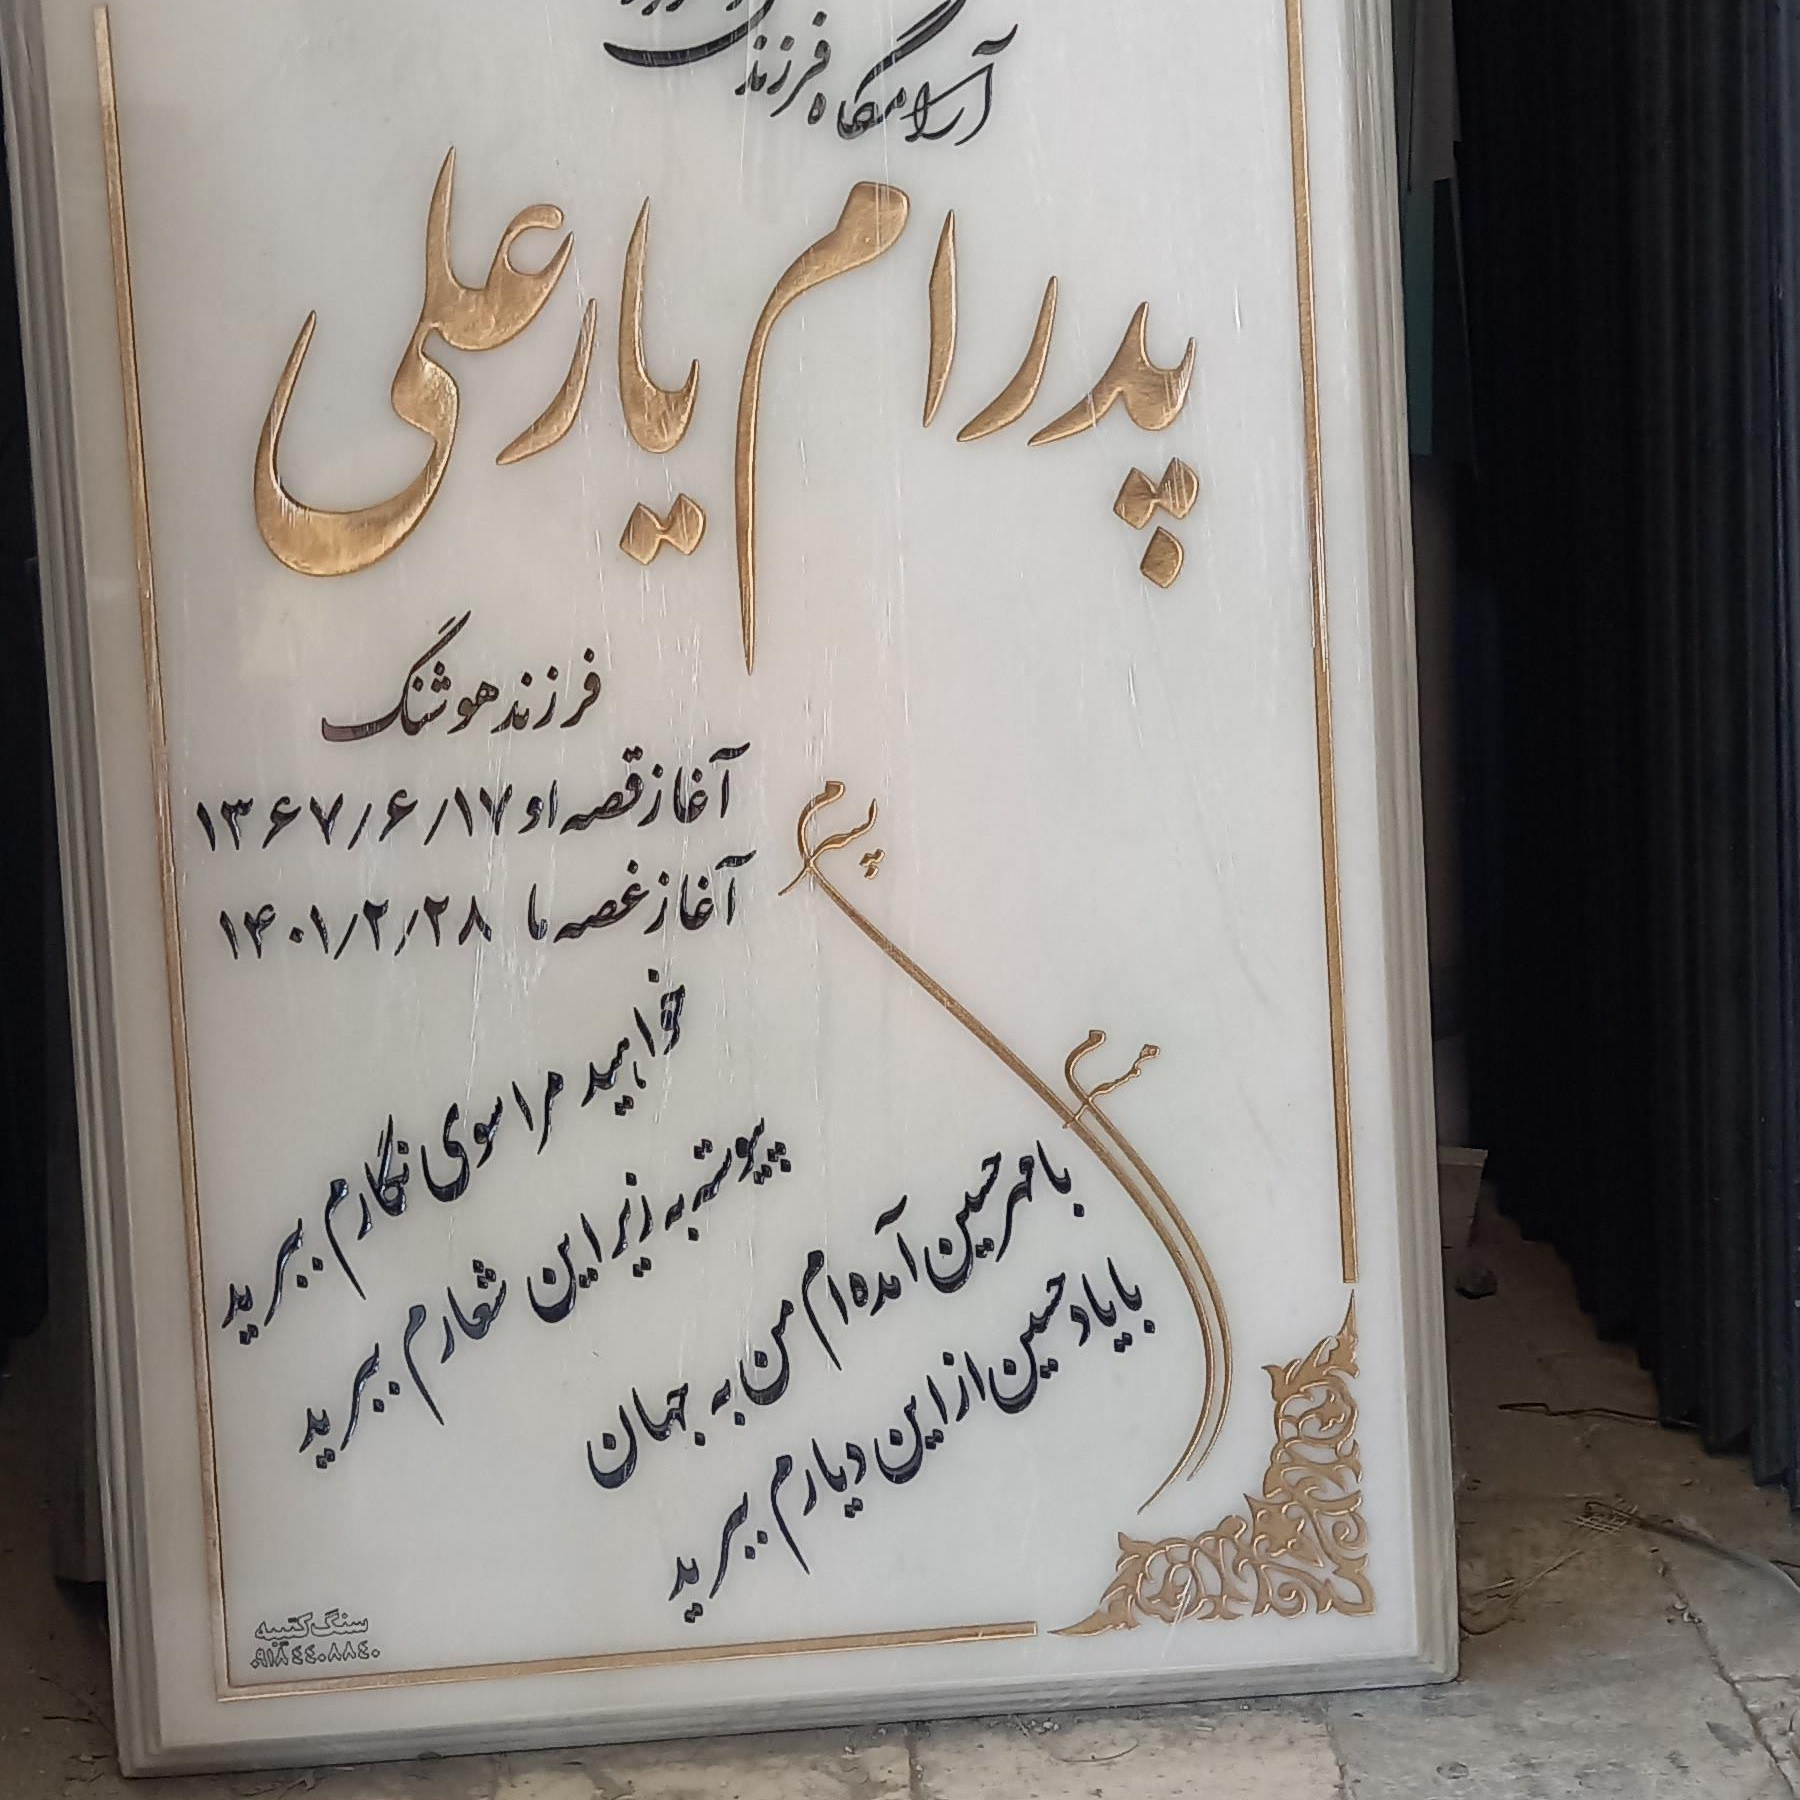 آرامگاه فرزند
پدرام یارعلی
فرزند هوشنگ
آغاز قصه او ۱۳۶۷/۶/۱۷
آغاز غصه ما ۱۴۰۱/۲/۲۸
پسرم
همسرم
خواهید مرا سوی نگارم ببرید
پیوسته به زیر این شعارم ببرید
با مهر حسین آمده ام من به جهان
با یاد حسین از این دیارم ببرید
سنگ کتیبه
۰۹۱۸۴۴۰۸۸۴۰